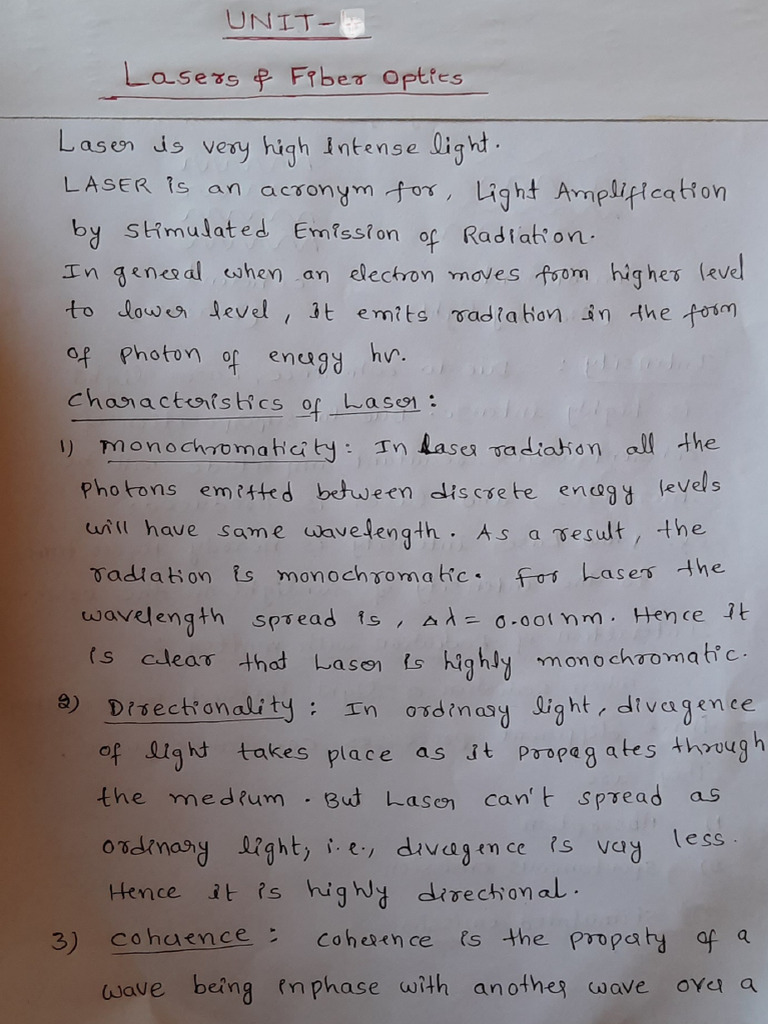 UNIT-
Lasers & Fiber Optics
Laser is very high intense light.
LASER is an acronym for, Light Amplification
by Stimulated Emission of Radiation.
In general when an electron moves from higher level
to lower level, it emits radiation in the form
of photon of energy hν.
Characteristics of Laser:
1) Monochromaticity: In Laser radiation all the
photons emitted between discrete energy levels
will have same wavelength. As a result, the
radiation is monochromatic. For Laser the
wavelength spread is, Δλ = 0.001nm. Hence it
is clear that Laser is highly monochromatic.
2) Directionality: In ordinary light, divergence
of light takes place as it propagates through
the medium. But Laser can't spread as
ordinary light, i.e., divergence is very less.
Hence it is highly directional.
3) Coherence: Coherence is the property of a
wave being inphase with another wave over a